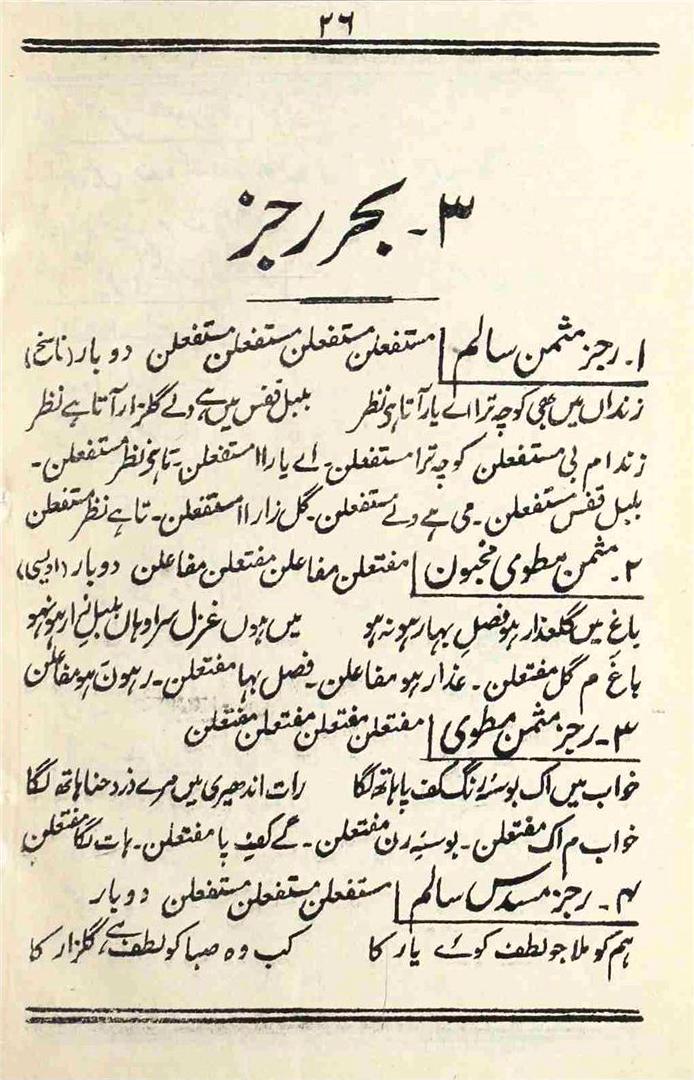 ۲۶
۳۔ بحر رجز
۱۔ رجز مثمن سالم مستفعلن مستفعلن مستفعلن مستفعلن دوبار (ناسخ)
زنداں میں بھی کوچہ ترا اے یار آتا ہے نظر بلبل قفس میں ہے ولے گلزار آتا ہے نظر
زندا م بی مستفعلن کوچہ ترا مستفعلن۔ اے یار اا مستفعلن۔ تا نظر مستفعلن۔
بلبل قفس مستفعلن۔ می ہے ولے مستفعلن۔ گل زار اا مستفعلن۔ تا ہے نظر مستفعلن
۲۔ مثمن مطوی مخبون مفتعلن مفاعلن مفتعلن مفاعلن دوبار (ادیسی)
باغ میں گلعذار ہو فصل بہار ہو نہ ہو میں ہوں غزل سرا وہاں بلبل زار ہو نہو
باغ م گل مفتعلن۔ عذار ہو مفاعلن۔ فصل بہا مفتعلن۔ ر ہو ن ہو مفاعلن
۳۔ رجز مثمن مطوی مفتعلن مفتعلن مفتعلن مفتعلن
خواب میں اک بوسۂ رنگ کف پا ہاتھ لگا رات اندھیری میں مرے دزد حنا ہاتھ لگا
خواب م اک مفتعلن۔ بوسۂ رن مفتعلن۔ گے کفِ پا مفتعلن۔ ہات لگا مفتعلن
۴۔ رجز مسدس سالم مستفعلن مستفعلن مستفعلن دوبار
ہم کو ملا جو لطف کوئے یار کا کب وہ صبا کو لطف ہے گلزار کا